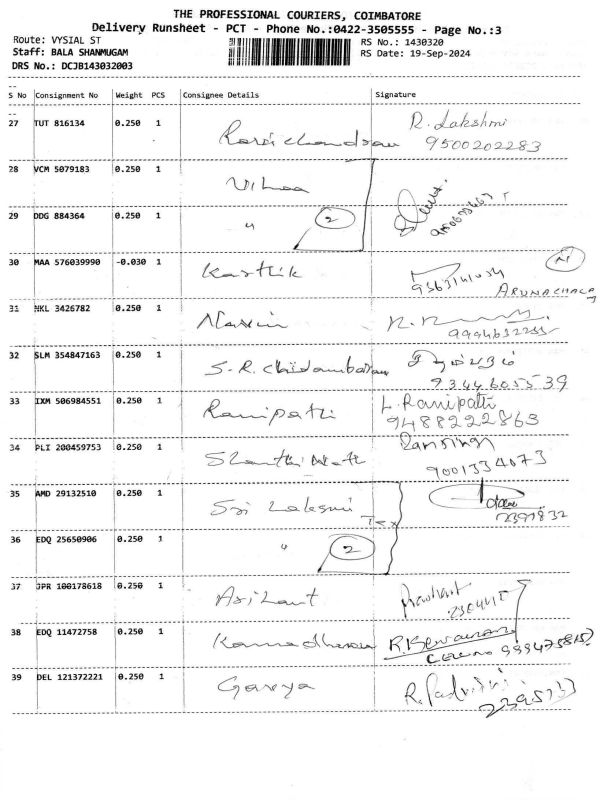 THE PROFESSIONAL COURIERS, COIMBATORE
Delivery Runsheet - PCT - Phone No.:0422-3505555 - Page No.:3
Route: VYSIAL ST
RS No.: 1430320
Staff: BALA SHANMUGAM
RS Date: 19-Sep-2024
DRS No.: DCJB143032003
S No Consignment No Weight PCS Consignee Details Signature
27 TUT 816134 0.250 1 R. Lakshmi
9500202283
28 VCM 5079183 0.250 1
29 DDG 884364 0.250 1 " 2
30 MAA 576039990 -0.030 1 Karthik
ARUNACHALA
31 NKL 3426782 0.250 1 Navin
32 SLM 354847163 0.250 1 S.R. Chidambaram சிதம்பரம்
9344605539
33 IXM 506984551 0.250 1 Ranipatti L. Ranipatti
9488222863
34 PLI 200459753 0.250 1 Shanthi Nath Ransingh
9001334073
35 AMD 29132510 0.250 1 Sri Laksmi Tex
2397832
36 EDQ 25650906 0.250 1 " 2
37 JPR 100178618 0.250 1 Arihant Prashant
38 EDQ 11472758 0.250 1
39 DEL 121372221 0.250 1 R. Padmini
2395733